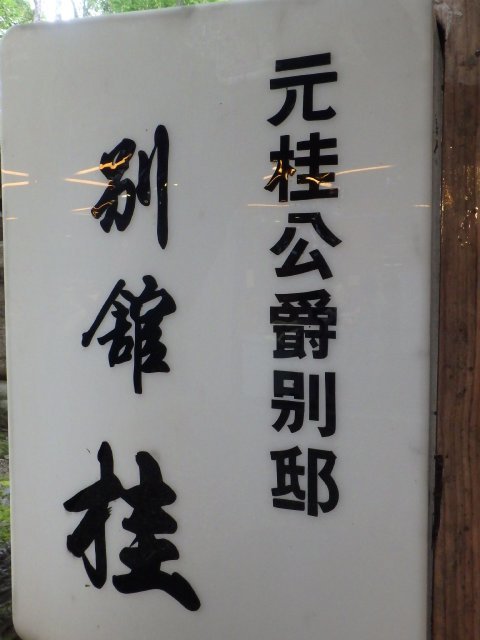 元桂公爵別邸
別舘桂